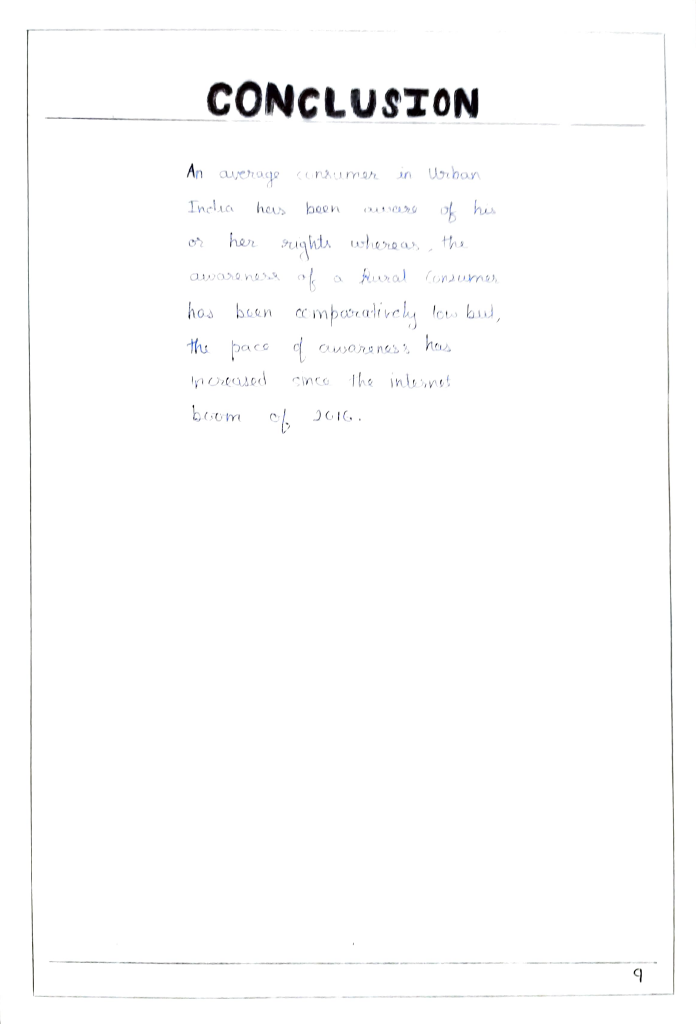 CONCLUSION
An average consumer in Urban
India has been aware of his
or her rights whereas, the
awareness of a Rural Consumer
has been comparatively low but,
the pace of awareness has
increased since the internet
boom of 2016.
9